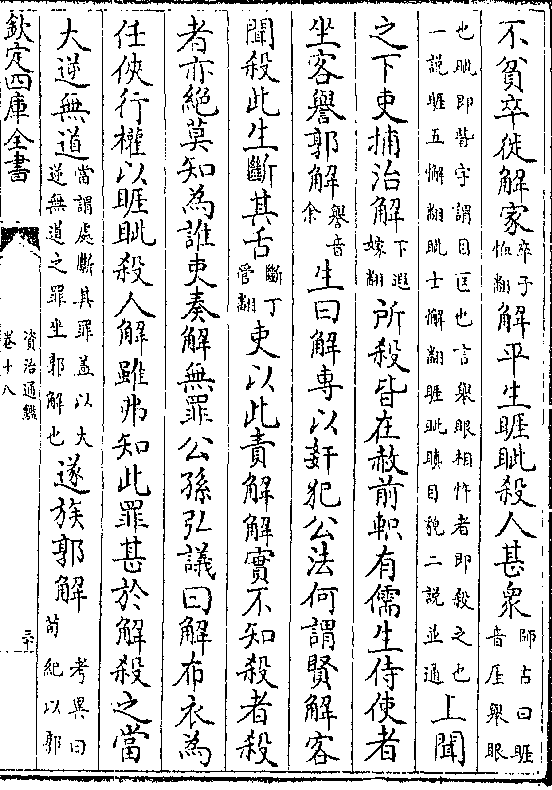 不貧卒徙解家卒子恤翻解平生睚眦殺人甚衆師古曰睚音厓舉眼
也眦即眥字謂目匡也言舉眼相忤者即殺之也一説睚五懈翻眦士懈翻睚眦瞋目貌二説並通上聞
之下吏捕治解下遐嫁翻所殺皆在赦前軹有儒生侍使者
坐客譽郭解譽音余生曰解專以姦犯公法何謂賢解客
聞殺此生斷其舌斷丁管翻吏以此責解解實不知殺者殺
者亦絶莫知為誰吏奏解無罪公孫弘議曰解布衣為
任俠行權以睚眦殺人解雖弗知此罪甚於解殺之當
大逆無道當謂處斷其罪盖以大逆無道之罪坐郭解也遂族郭解考異曰荀紀以郭
欽定四庫全書
資治通鑑
卷十八
三十